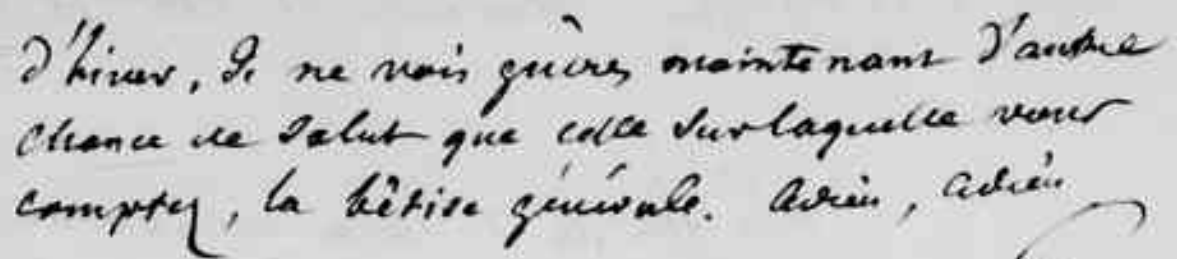 d'hiver, Je ne vois guères maintenant d'autre
chance de salut que celle sur laquelle vous
comptez, la bêtise générale. Adieu, adieu